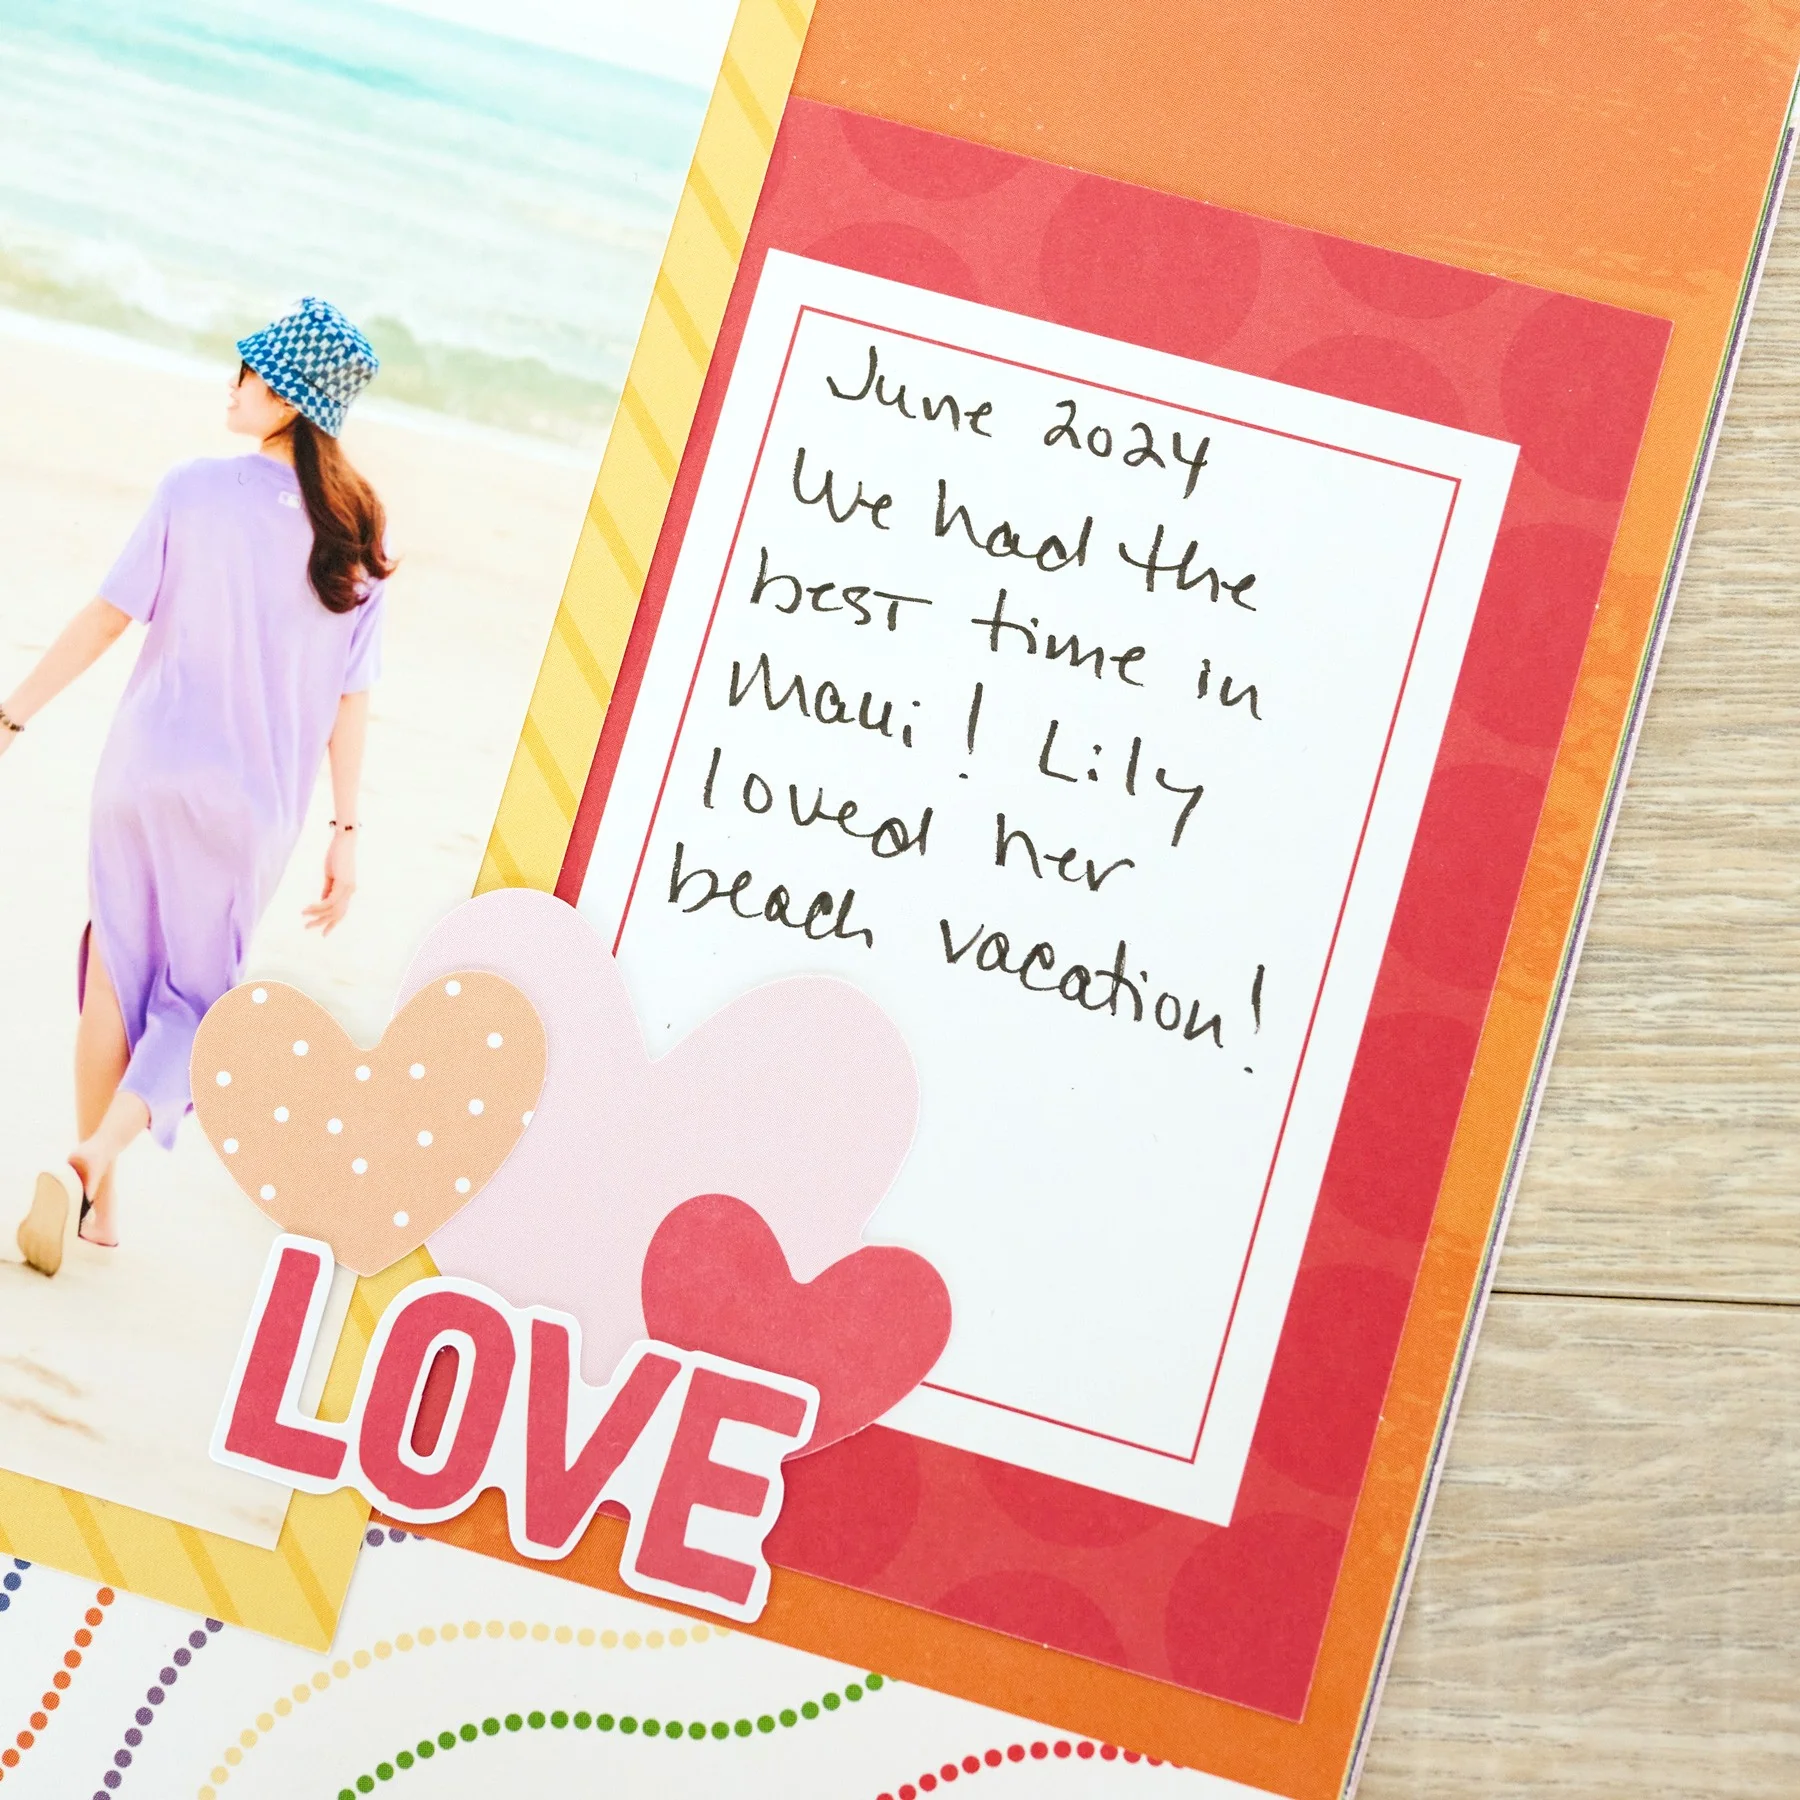 June 2024
We had the
best time in
Maui! Lily
loved her
beach vacation!
LOVE